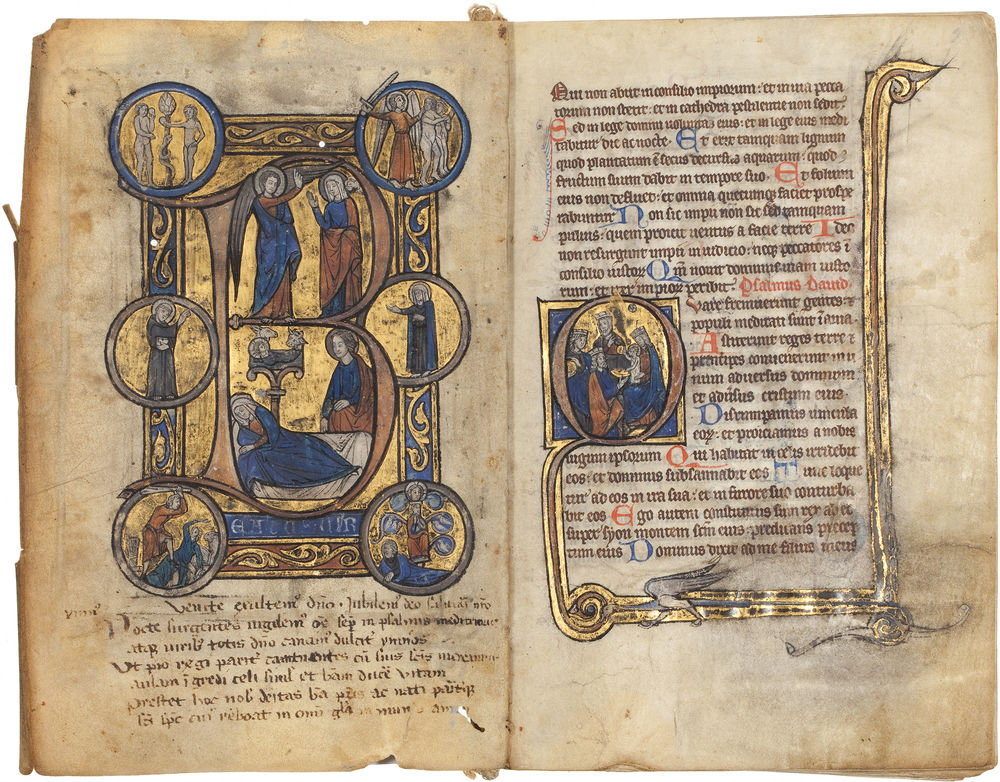 B
EATUS VIR
ymnus
Venite exultem⁹ dño iubilem⁹ deo salutari nro
Nocte surgentes vigilem⁹ ões semp in psalmis meditemur
atq; virib; totis dño canam⁹ dulcit ymnos
Ut pio regi parit canentes cũ suis scis mereamur
aulam ĩgredi celi simul et bam ducẽ vitam
Prestet hoc nob deitas ba pris ac nati paritq;
sci spc cui⁹ reboat in omi gla mun
Qui non abiit in consilio impiorum: et in uia pecca
torum non stetit: et in cathedra pestilentie non sedit.
Sed in lege domini uoluntas eius: et in lege eius medi
tabitur die ac nocte. Et erit tamquam lignum
quod plantatum ẽ secus decursus aquarum: quod
fructum suum dabit in tempore suo. Et folium
eius non defluet: et omnia quecunq; faciet prospe
rabuntur. Non sic impii non sic: sed tamquam
puluis: quem proicit uentus a facie terre. Ideo
non resurgunt impii in iudicio: neq; peccatores ĩ
consilio iustor̃. Qm̃ nouit dominus uiam iusto
rum: et iter impior̃ peribit. Psalmus Dauid.
Quare fremuerunt gentes: &
populi meditati sunt ĩania.
Astiterunt reges terre &
principes conuenerunt in u
num aduersus dominum
et aduersus cristum eius.
Disrumpamus uincula
eor̃: et proiciamus a nobis
iugum ipsorum. Qui habitat in celis irridebit
eos: et dominus subsannabit eos. Tunc loque
tur ad eos in ira sua: et in furore suo conturba
bit eos. Ego autem constitutus sum rex ab eo
super syon montem scm̃ eius: predicans precep
tum eius. Dominus dixit ad me filius meus